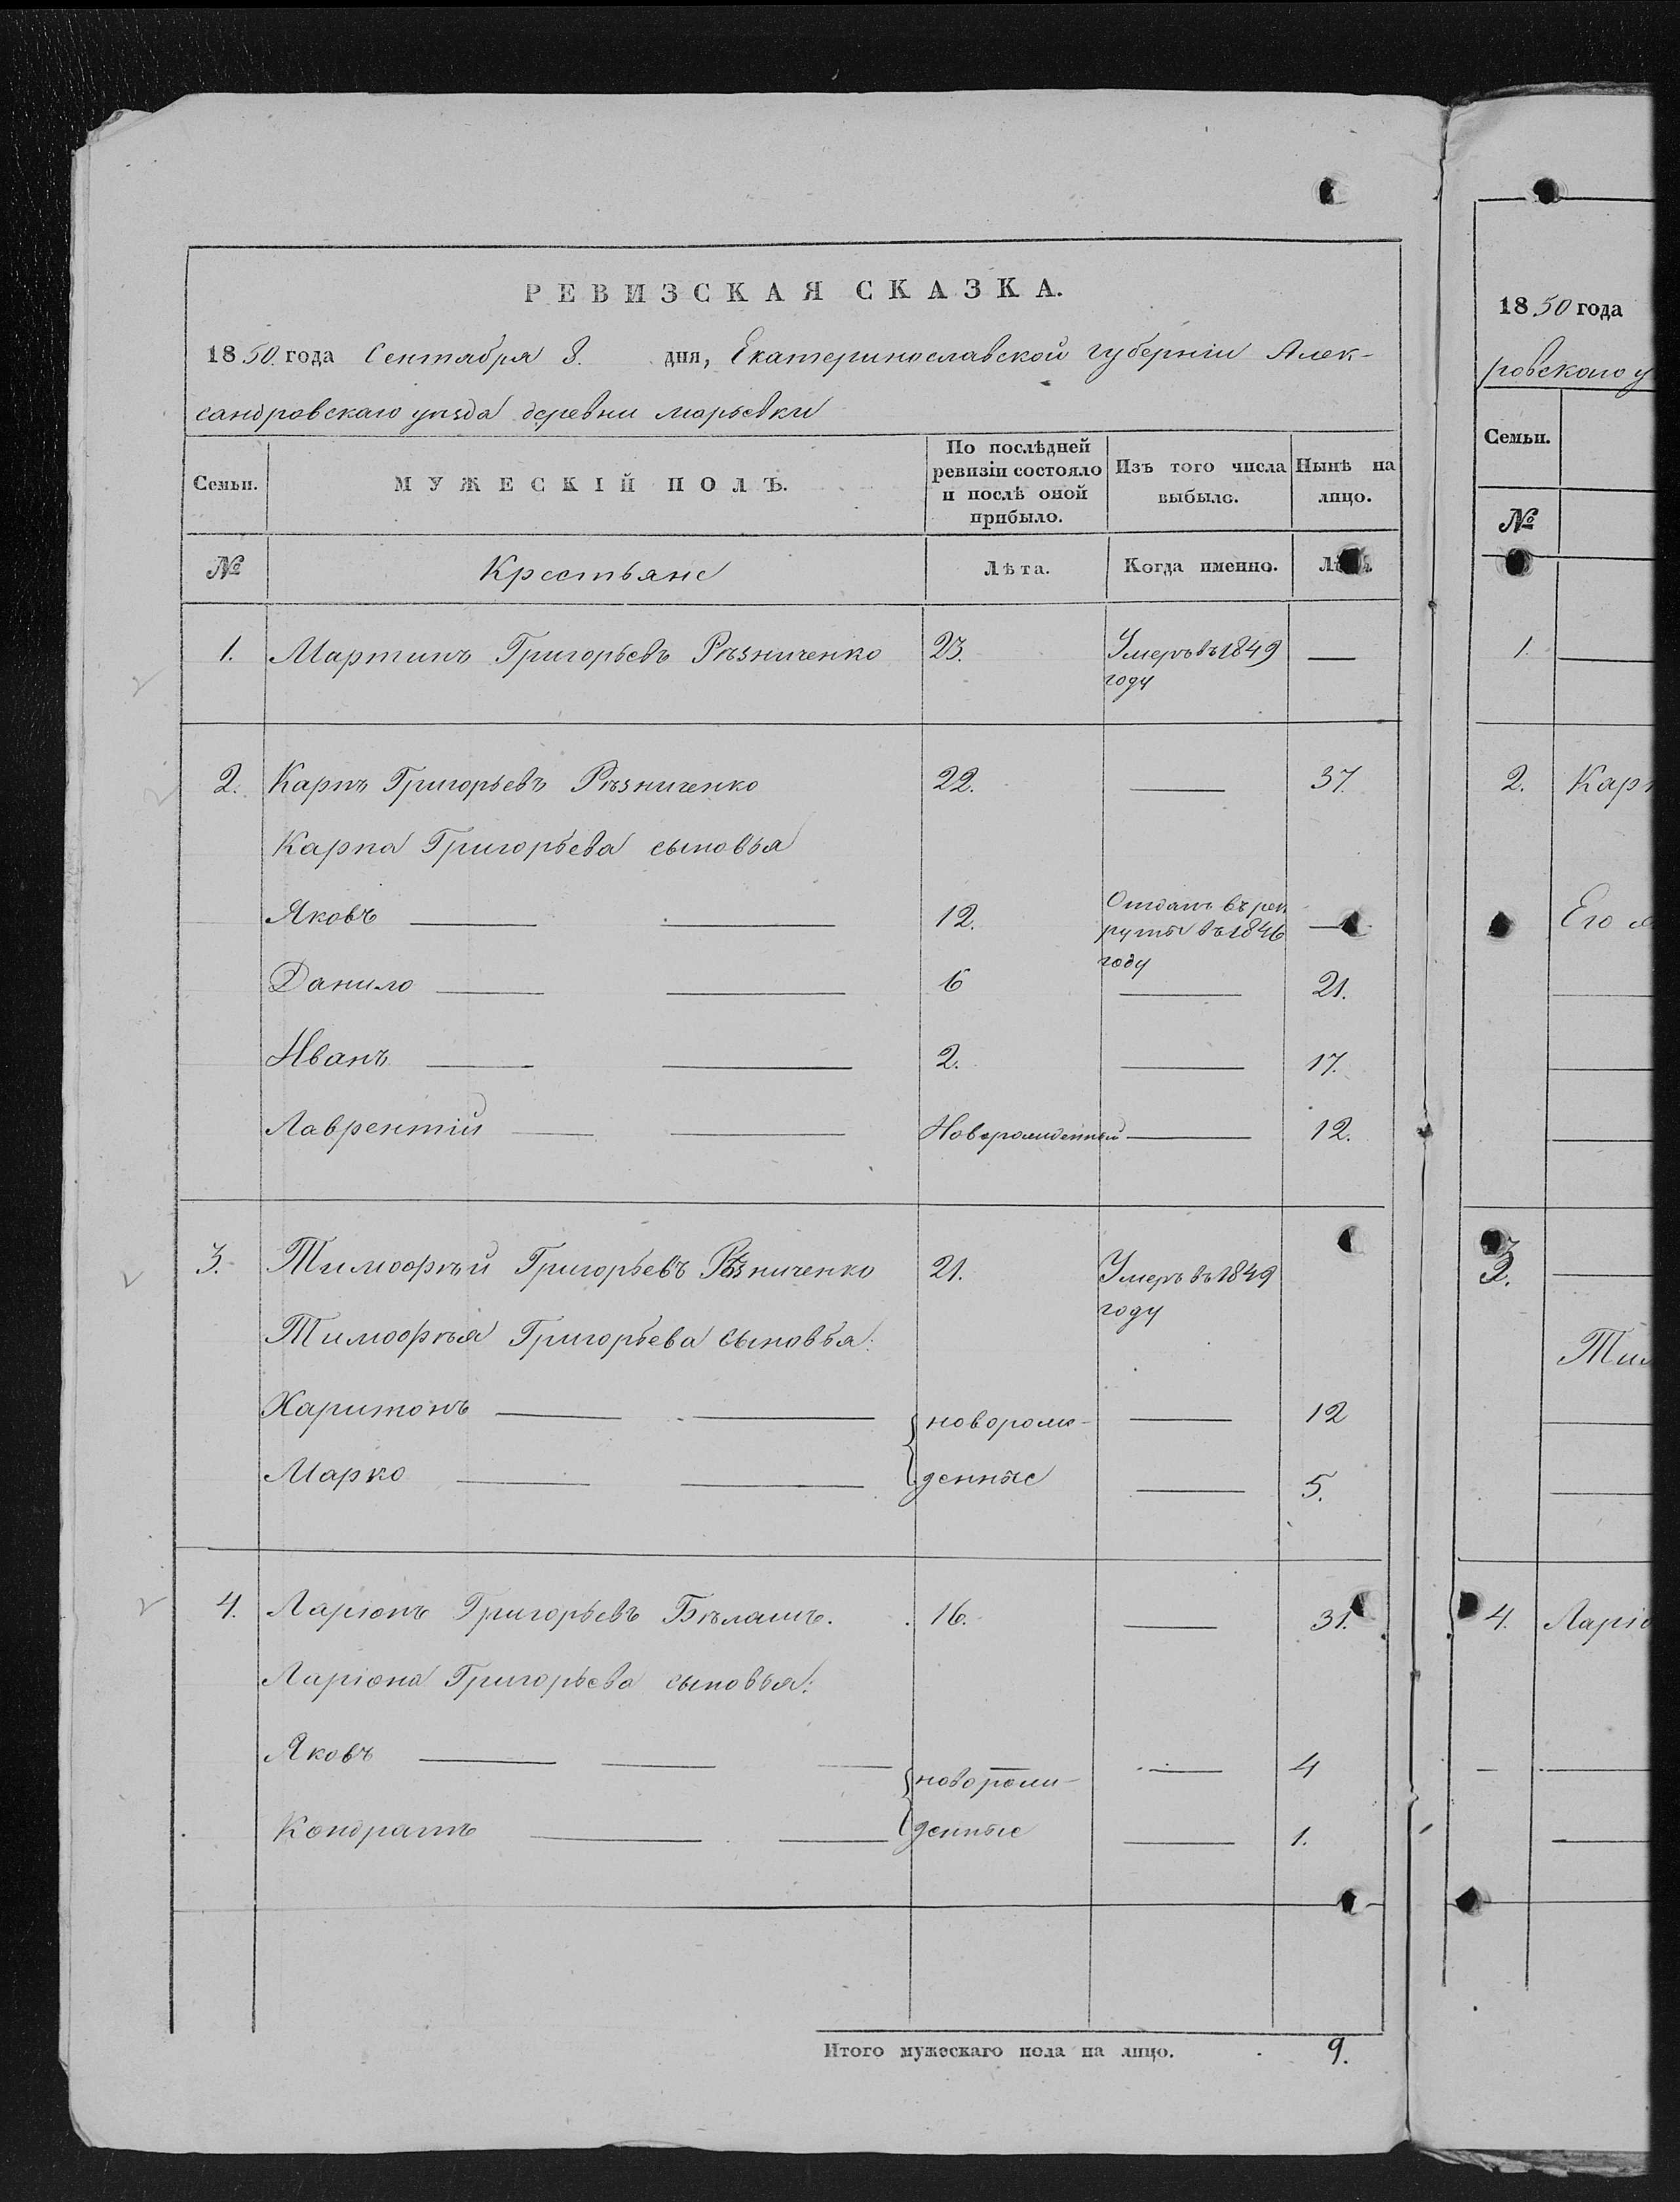 РЕВИЗСКАЯ СКАЗКА.
1850 года Сентября 8. дня, Екатеринославской губернiи Алек-
сандровскаго уѣзда деревни марьевки
Семьи. МУЖЕСКIЙ ПОЛЪ. По послѣдней ревизiи состояло и послѣ оной прибыло. Изъ того числа выбыло. Нынѣ на лицо.
№ Крестьяне Лѣта. Когда именно. Лѣта.
1. Мартинъ Григорьевъ Рѣзниченко 23. Умеръ въ 1849 —
году
2. Карпъ Григорьевъ Рѣзниченко 22. — 37.
Карпа Григорьева сыновья
Яковъ — — 12. Отданъ въ рек —
руты въ 1846
году
Данило — — 6 — 21.
Иванъ — — 2. — 17.
Лаврентiй — — Новорожденный — 12.
3. Тимофѣй Григорьевъ Рѣзниченко 21. Умеръ въ 1849
году
Тимофѣя Григорьева сыновья:
Харитонъ — — новорож- — 12
Марко — — денные — 5.
4. Ларiонъ Григорьевъ Бѣлашъ. 16. — 31.
Ларiона Григорьева сыновья:
Яковъ — — — новорож- — 4
Кондратъ — — денные — 1.
Итого мужескаго пола на лицо. 9.
1850 года
ровскаго у
Семьи.
№
1. —
2. Карп
Его
3. —
Тим
4. Ларiо